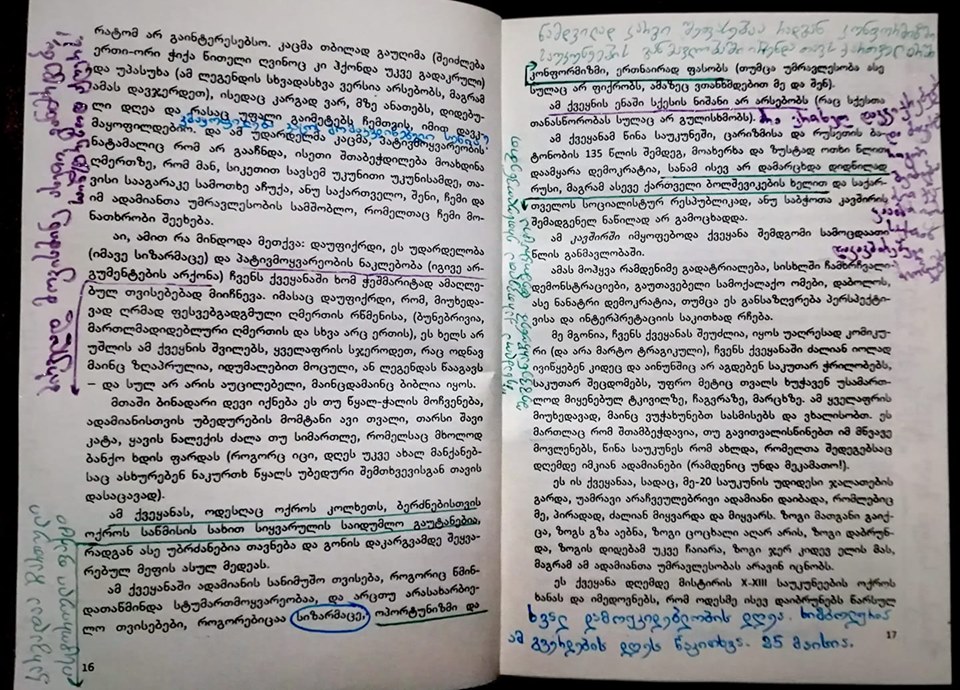 რატომ არ გაინტერესებსო. კაცმა თბილად გაუღიმა (შეიძლება
ერთი-ორი ჭიქა წითელი ღვინოც კი ჰქონდა უკვე გადაკრული)
და უპასუხა (ამ ლეგენდის სხვადასხვა ვერსია არსებობს, მაგრამ
ამას დავჯერდეთ), ისედაც კარგად ვარ, მზე ანათებს, დიდებუ-
ლი დღეა და რასაც უფალი გაიმეტებს ჩემთვის, იმით დავკ-
მაყოფილდებიო. და ამ უდარდელმა კაცმა, პატივმოყვარეობის
ნატამალიც რომ არ გააჩნდა, ისეთი შთაბეჭდილება მოახდინა
ღმერთზე, რომ მან, სიკეთით სავსემ უკუნითი უკუნისამდე, თა-
ვისი სააგარაკე სამოთხე აჩუქა, ანუ საქართველო, შენი, ჩემი და
იმ ადამიანთა უმრავლესობის სამშობლო, რომელთაც ჩემი მო-
ნათხრობი შეეხება.
აი, ამით რა მინდოდა მეთქვა: დაუფიქრდი, ეს უდარდელობა
(იმავე სიზარმაცე) და პატივმოყვარეობის ნაკლებობა (იგივე არ-
გუმენტების არქონა) ჩვენს ქვეყანაში ხომ ჭეშმარიტად ამაღლე-
ბულ თვისებებად მიიჩნევა. იმასაც დაუფიქრდი, რომ, მიუხედა-
ვად ღრმად ფესვებგადგმული ღმერთის რწმენისა, (ბუნებრივია,
მართლმადიდებლური ღმერთის და სხვა არც ერთის), ეს ხელს არ
უშლის ამ ქვეყნის შვილებს, ყველაფრის სჯეროდეთ, რაც ოდნავ
მაინც ზღაპრულია, იდუმალებით მოცული, ან ლეგენდას წააგავს
– და სულ არ არის აუცილებელი, მაინცდამაინც ბიბლია იყოს.
მთაში ბინადარი დევი იქნება ეს თუ წყალ-ჭალის მოჩვენება,
ადამიანისთვის უბედურების მომტანი ავი თვალი, თარსი შავი
კატა, ყავის ნალექის ძალა თუ სიმართლე, რომელსაც მხოლოდ
ბანქო ხდის ფარდას (როგორც იცი, დღეს უკვე ახალ მანქანებ-
საც ასხურებენ ნაკურთხ წყალს უბედური შემთხვევისგან თავის
დასაცავად).
ამ ქვეყანას, ოდესღაც ოქროს კოლხეთს, ბერძნებისთვის
ოქროს საწმისის სახით სიყვარულის საიდუმლო გაუტანებია,
რადგან ასე უბრძანებია თავნება და გონის დაკარგვამდე შეყვა-
რებულ მეფის ასულ მედეას.
ამ ქვეყანაში ადამიანის სანიმუშო თვისება, როგორიც წმინ-
დათაწმინდა სტუმართმოყვარეობაა, და არცთუ არასახარბიე-
ლო თვისებები, როგორებიცაა სიზარმაცე, ოპორტუნიზმი და
16
კონფორმიზმი, ერთნაირად ფასობს (თუმცა უმრავლესობა ასე
სულაც არ ფიქრობს, ამაზეც ვთანხმდებით მე და შენ).
ამ ქვეყნის ენაში სქესის ნიშანი არ არსებობს (რაც სქესთა
თანასწორობას სულაც არ გულისხმობს).
ამ ქვეყანამ წინა საუკუნეში, ცარიზმისა და რუსეთის ბა-
ტონობის 135 წლის შემდეგ, მოახერხა და ზუსტად ოთხი წლით
დაამყარა დემოკრატია, სანამ ისევ არ დამარცხდა დიდწილად
რუსი, მაგრამ ასევე ქართველი ბოლშევიკების ხელით და საქარ-
თველოს სოციალისტურ რესპუბლიკად, ანუ საბჭოთა კავშირის
შემადგენელ ნაწილად არ გამოცხადდა.
ამ კავშირში იმყოფებოდა ქვეყანა შემდგომი სამოცდაათი
წლის განმავლობაში.
ამას მოჰყვა რამდენიმე გადატრიალება, სისხლში ჩამხრჩვალი
დემონსტრაციები, გაუთავებელი სამოქალაქო ომები, დაბოლოს,
ასე ნანატრი დემოკრატია, თუმცა ეს განსაზღვრება პერსპექტი-
ვისა და ინტერპრეტაციის საკითხად რჩება.
მე მგონია, ჩვენს ქვეყანას შეუძლია, იყოს უაღრესად კომიკუ-
რი (და არა მარტო ტრაგიკული), ჩვენს ქვეყანაში ძალიან იოლად
ივიწყებენ კიდეც და აინუნშიც არ აგდებენ საკუთარ ჭრილობებს,
საკუთარ შეცდომებს, უფრო მეტიც თვალს ხუჭავენ უსამართ-
ლოდ მიყენებულ ტკივილზე, ჩაგვრაზე, მარცხზე. ამ ყველაფრის
მიუხედავად, მაინც ვუჭახუნებთ სასმისებს და ვხალისობთ. ეს
მართლაც რომ შთამბეჭდავია, თუ გავითვალისწინებთ იმ მწვავე
მოვლენებს, წინა საუკუნეს რომ ახლდა, რომელთა შედეგებსაც
დღემდე იმკიან ადამიანები (რამდენიც უნდა მეკამათო!).
ეს ის ქვეყანაა, სადაც, მე-20 საუკუნის უდიდესი ჯალათების
გარდა, უამრავი არაჩვეულებრივი ადამიანი დაიბადა, რომლებიც
მე, პირადად, ძალიან მიყვარდა და მიყვარს. ზოგი მათგანი გაიქ-
ცა, ზოგს გზა აებნა, ზოგი ცოცხალი აღარ არის, ზოგი დაბრუნ-
და, ზოგის დიდებამ უკვე ჩაიარა, ზოგი ჯერ კიდევ ელის მას,
მაგრამ ამ ადამიანთა უმრავლესობას არავინ იცნობს.
ეს ქვეყანა დღემდე მისტირის X-XIII საუკუნეების ოქროს
ხანას და იმედოვნებს, რომ ოდესმე ისევ დაიბრუნებს წარსულ
ხვალ დამოუკიდებლობის დღეა. სიმბოლურია
ამ გვერდების დღეს წაკითხვა. 25 მაისია.
17